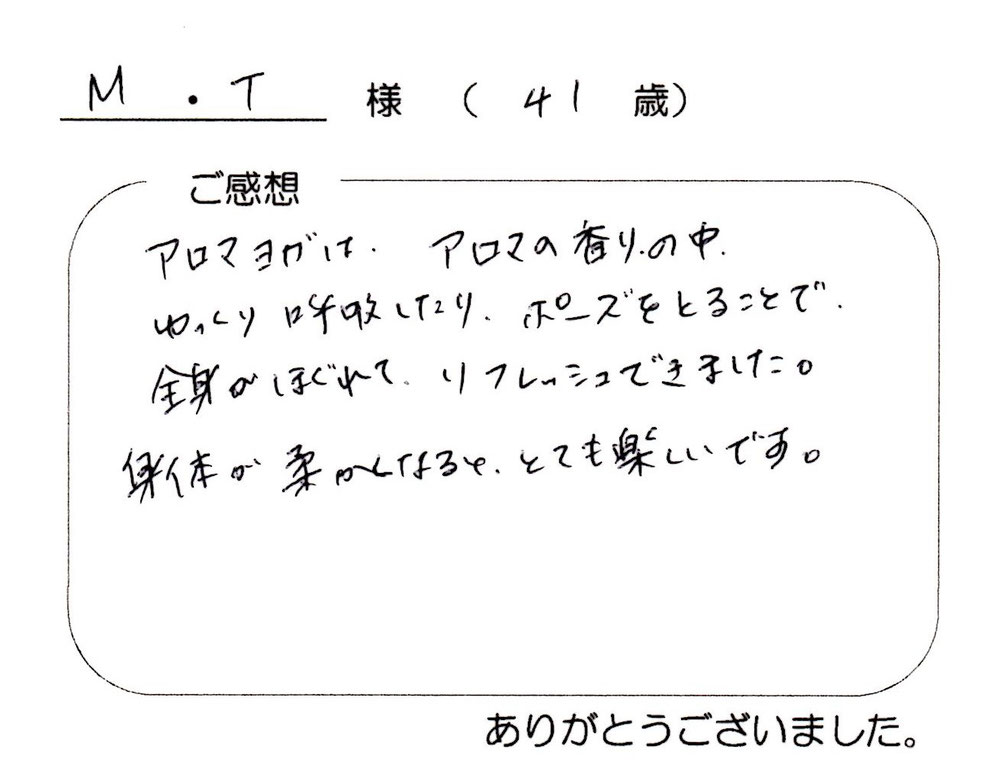 M・T 様 ( 41 歳)
ご感想
アロマヨガは、アロマの香りの中、
ゆっくり呼吸したり、ポーズをとることで、
全身がほぐれて、リフレッシュできました。
身体が柔かくなると、とても楽しいです。
ありがとうございました。